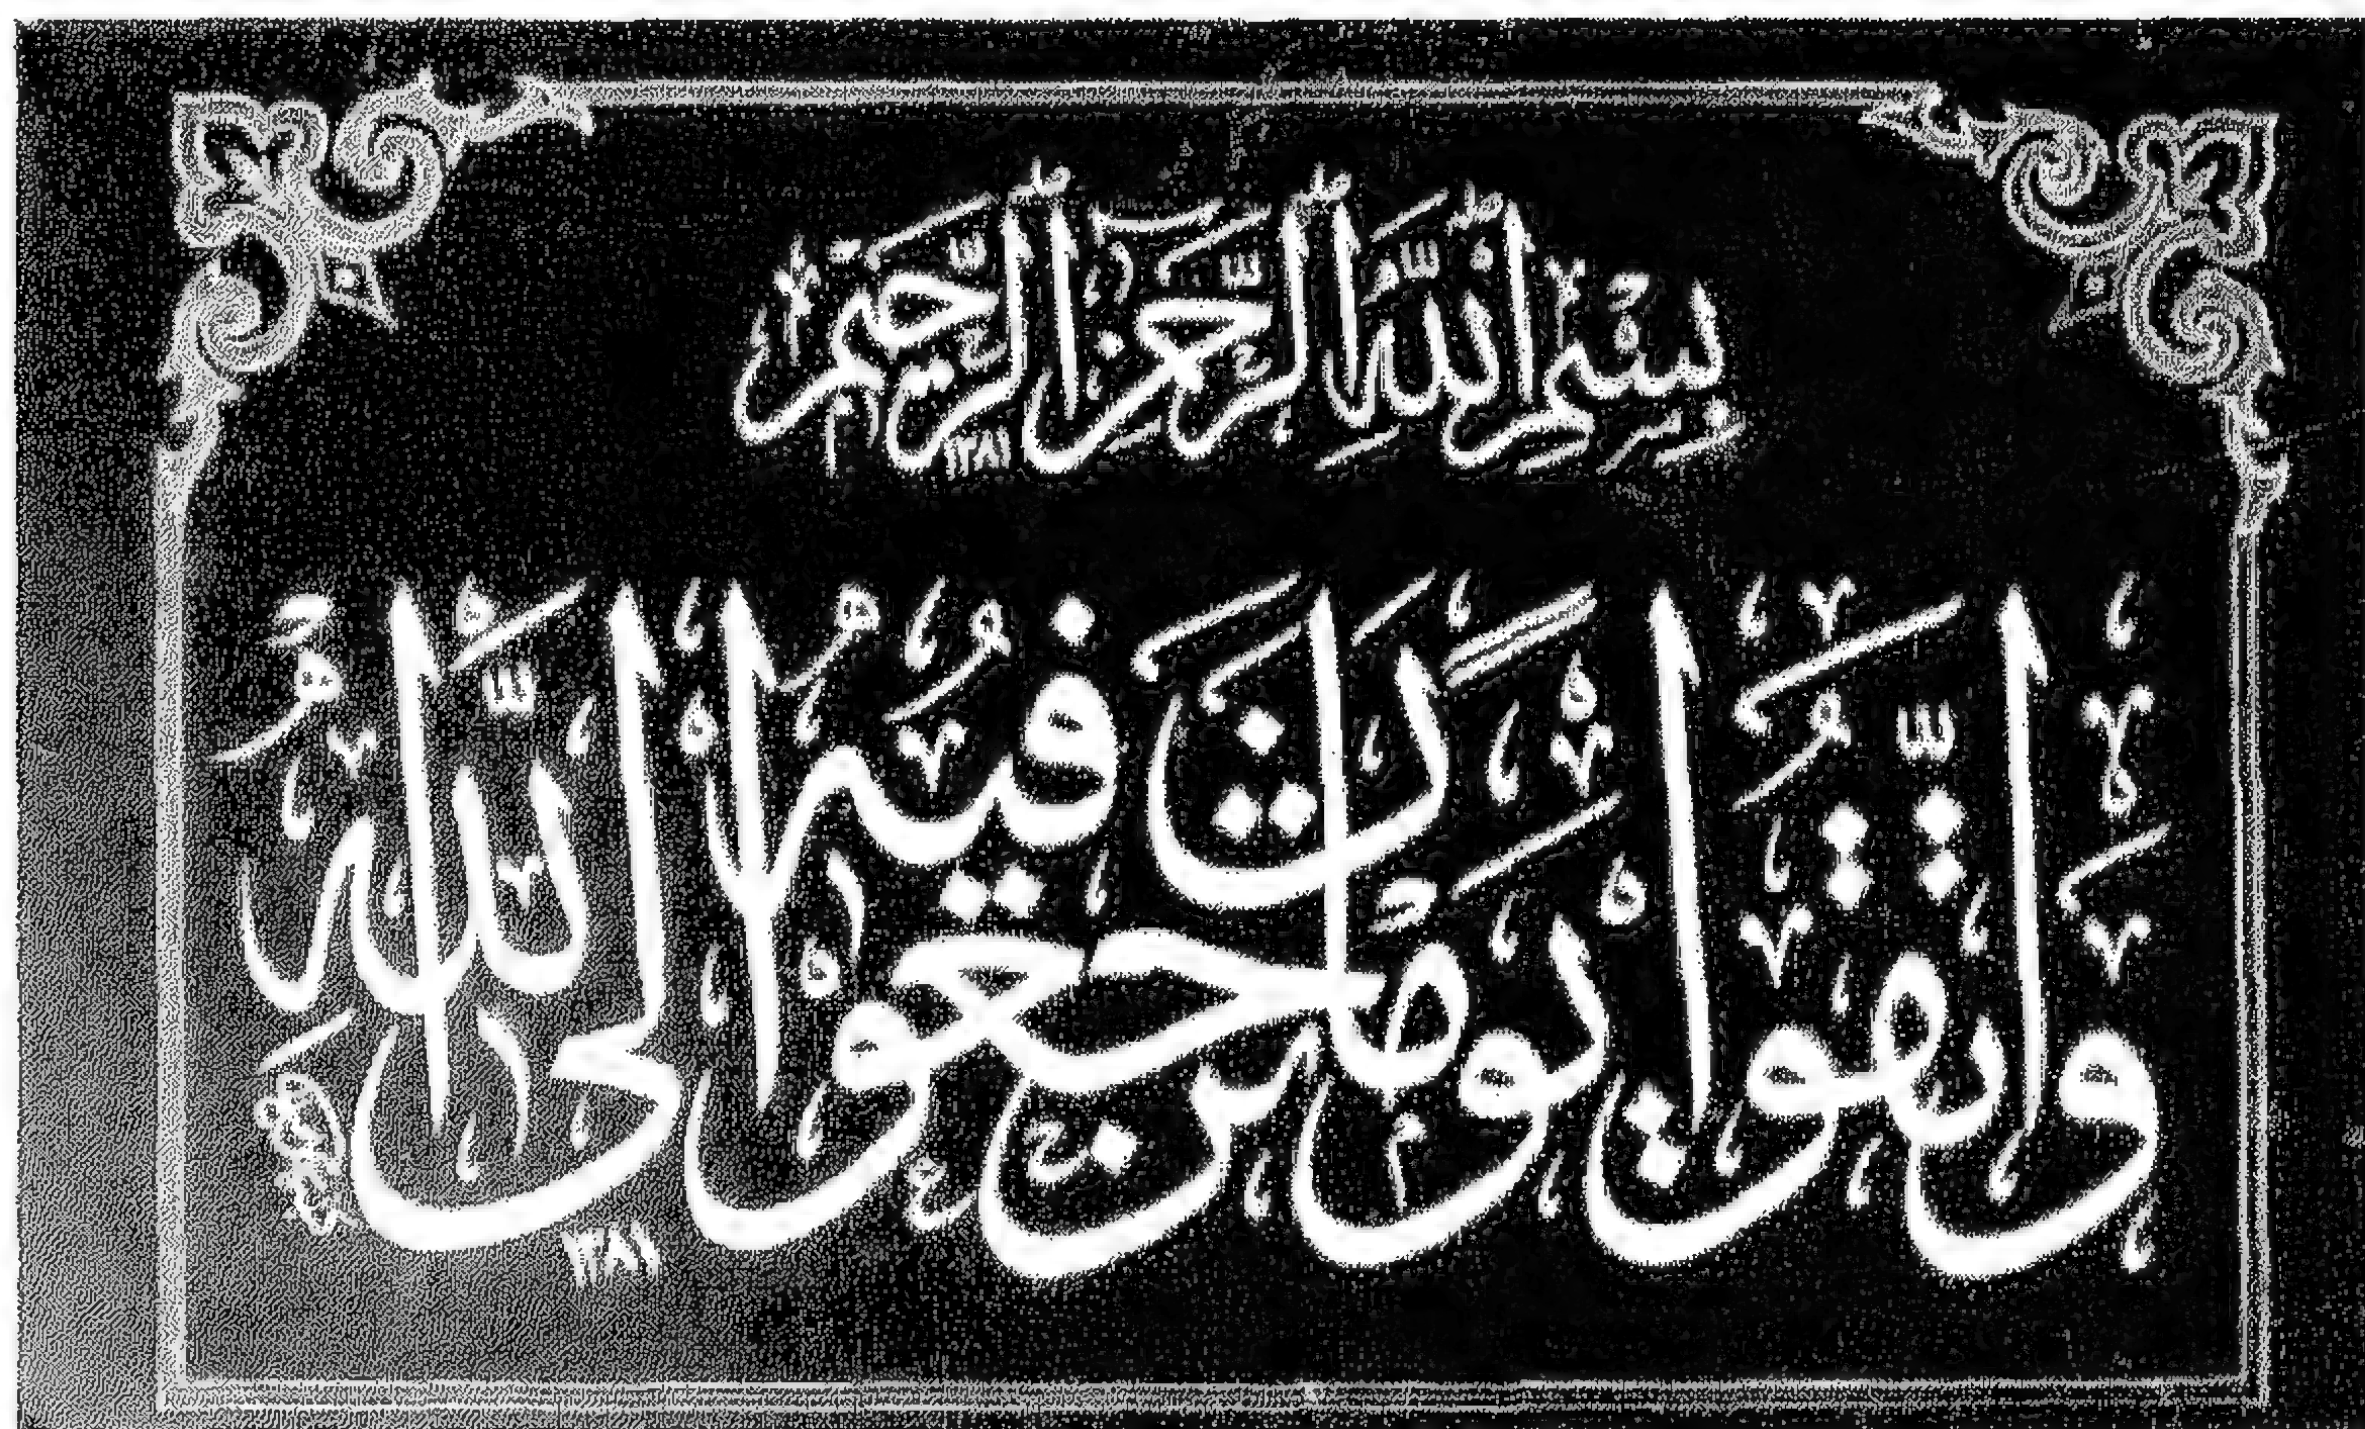 بِسْمِ اللَّهِ الرَّحْمَٰنِ الرَّحِيمِ
١٣٨١
وَاتَّقُوا يَوْمًا تُرْجَعُونَ فِيهِ إِلَى اللَّهِ
١٣٨١